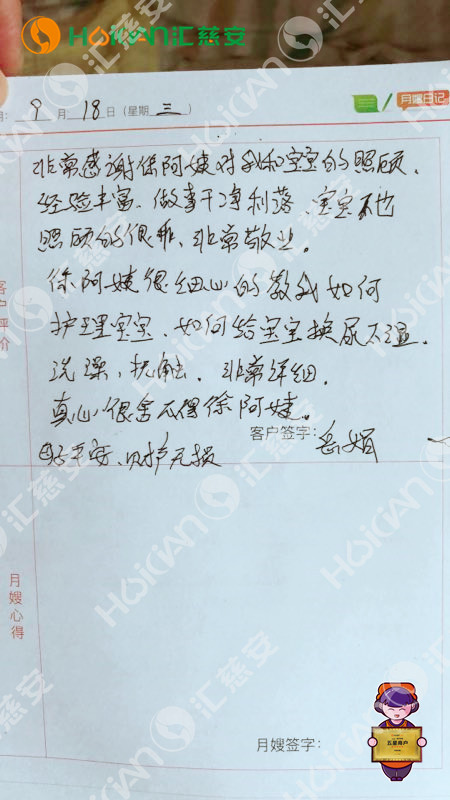 HOIKIAN汇慈安
9月18日（星期三）
月嫂日记
非常感谢徐阿姨对我和宝宝的照顾，
经验丰富，做事干净利落，宝宝也
照顾的很非，非常敬业。
徐阿姨很细心的教我如何
护理宝宝，如何给宝宝换尿不湿，
洗澡，抚触，非常详细，
真心很舍不得徐阿姨。
客户评价
客户签字：
平安，财产无损
月嫂心得
月嫂签字：
五星商户